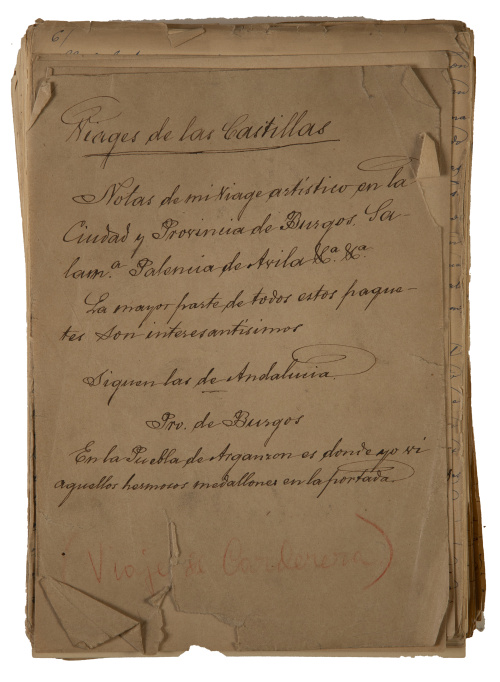 6
Viages de las Castillas
Notas de mi Viage artístico en la
Ciudad y Provincia de Burgos. Sa-
lam.ª Palencia de Avila &ª. &ª.
La mayor parte de todos estos paque-
tes son interesantísimos
Siguen las de Andalucia.
Pro. de Burgos
En la Puebla de Arganzon es donde yo vi
aquellos hermosos medallones en la portada.
(Viaje de Carderera)